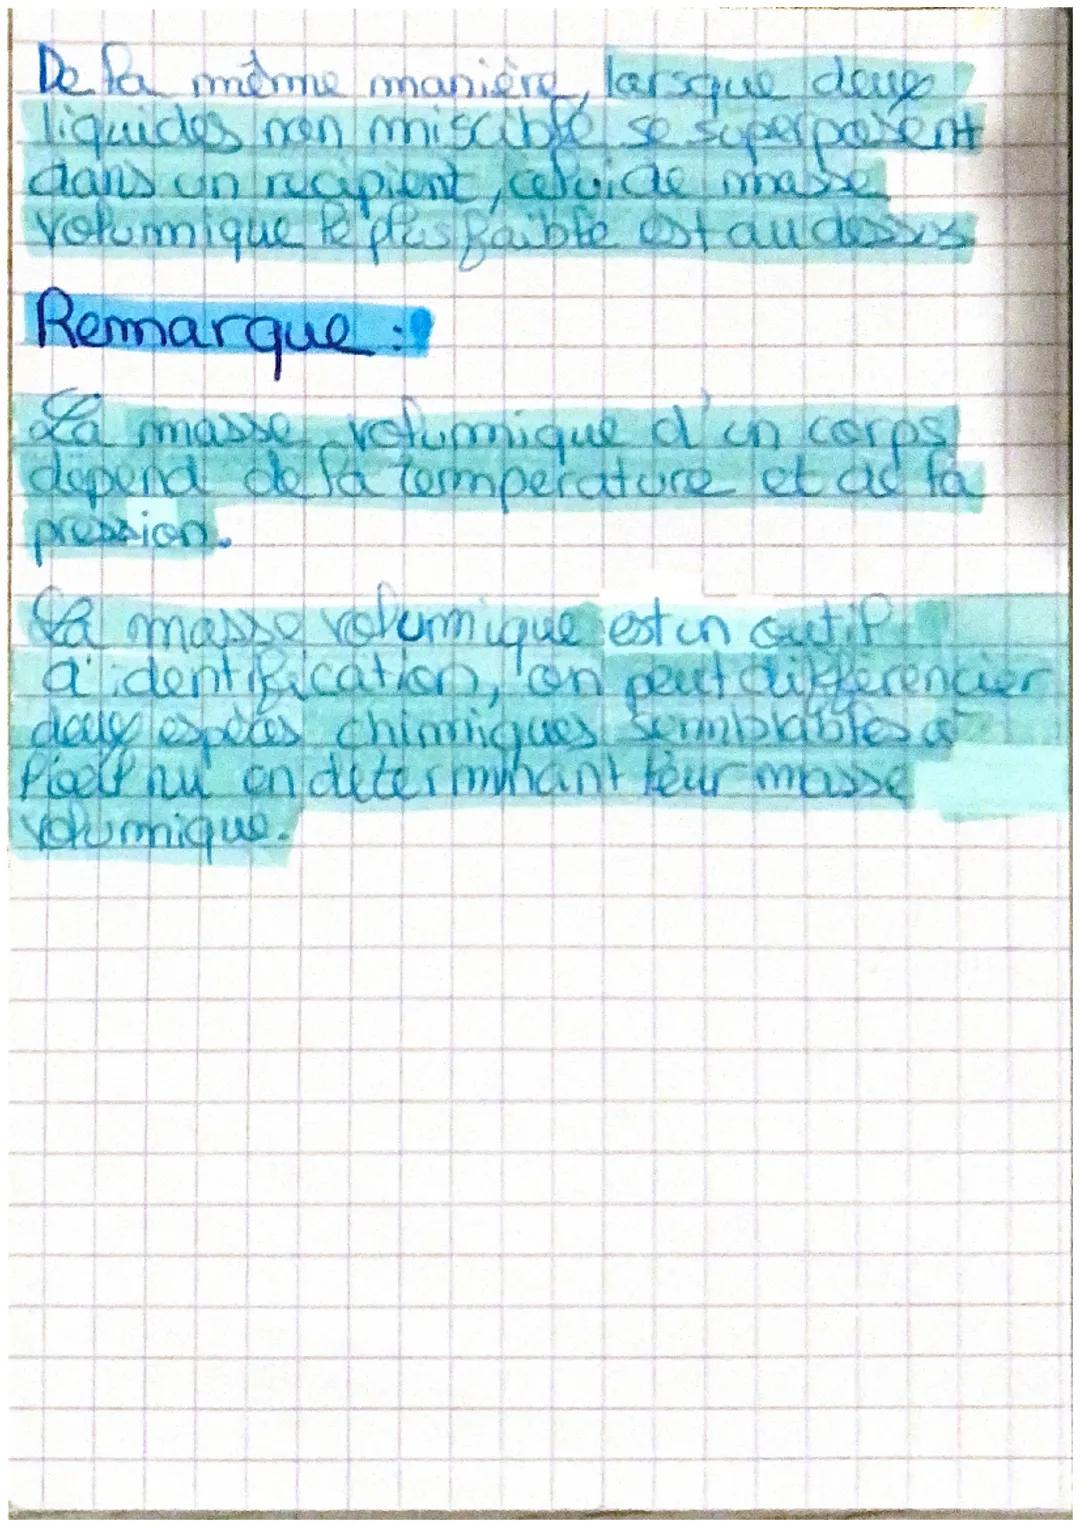 De la même manière, lorsque deux
liquides non miscible se superposent
dans un récipient, celui de masse
volumique le plus faible est au dessus
Remarque :
La masse volumique d'un corps
dépend de la température et de la
pression.
La masse volumique est un outil
d'identification, on peut différencier
deux espèces chimiques semblables à
l'oeil nu en déterminant leur masse
volumique.